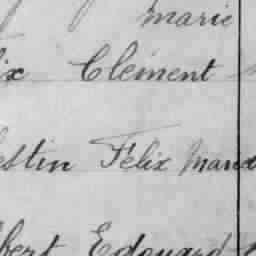 marie
ix Clément
estin Félix Marie
bert Edouard